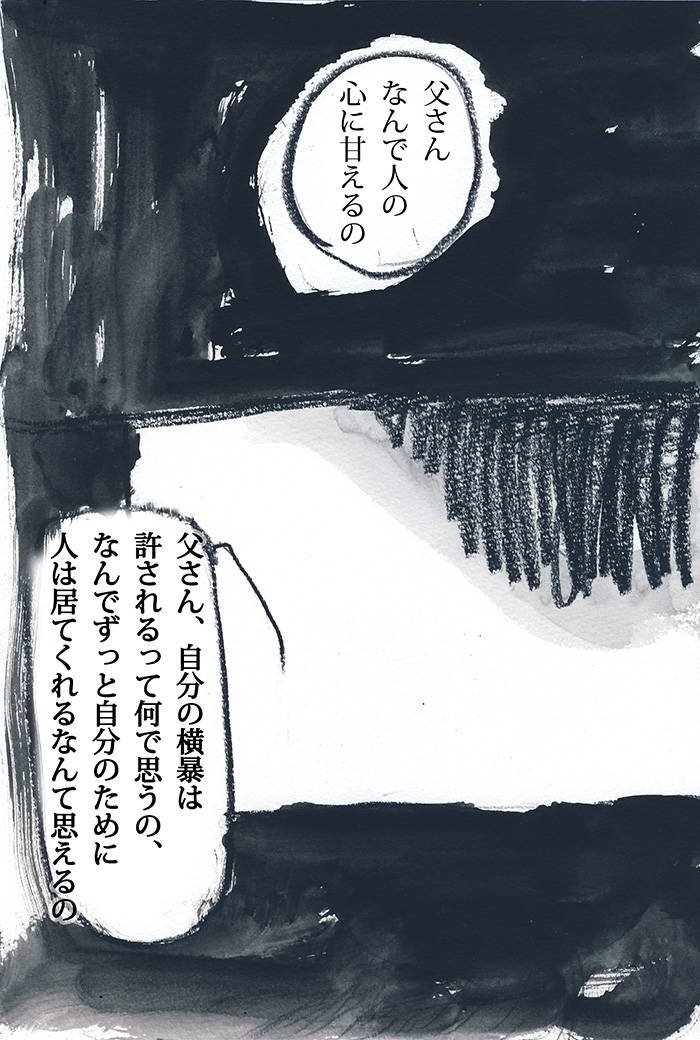 父さん
なんで人の
心に甘えるの
父さん、自分の横暴は
許されるって何で思うの、
なんでずっと自分のために
人は居てくれるなんて思えるの